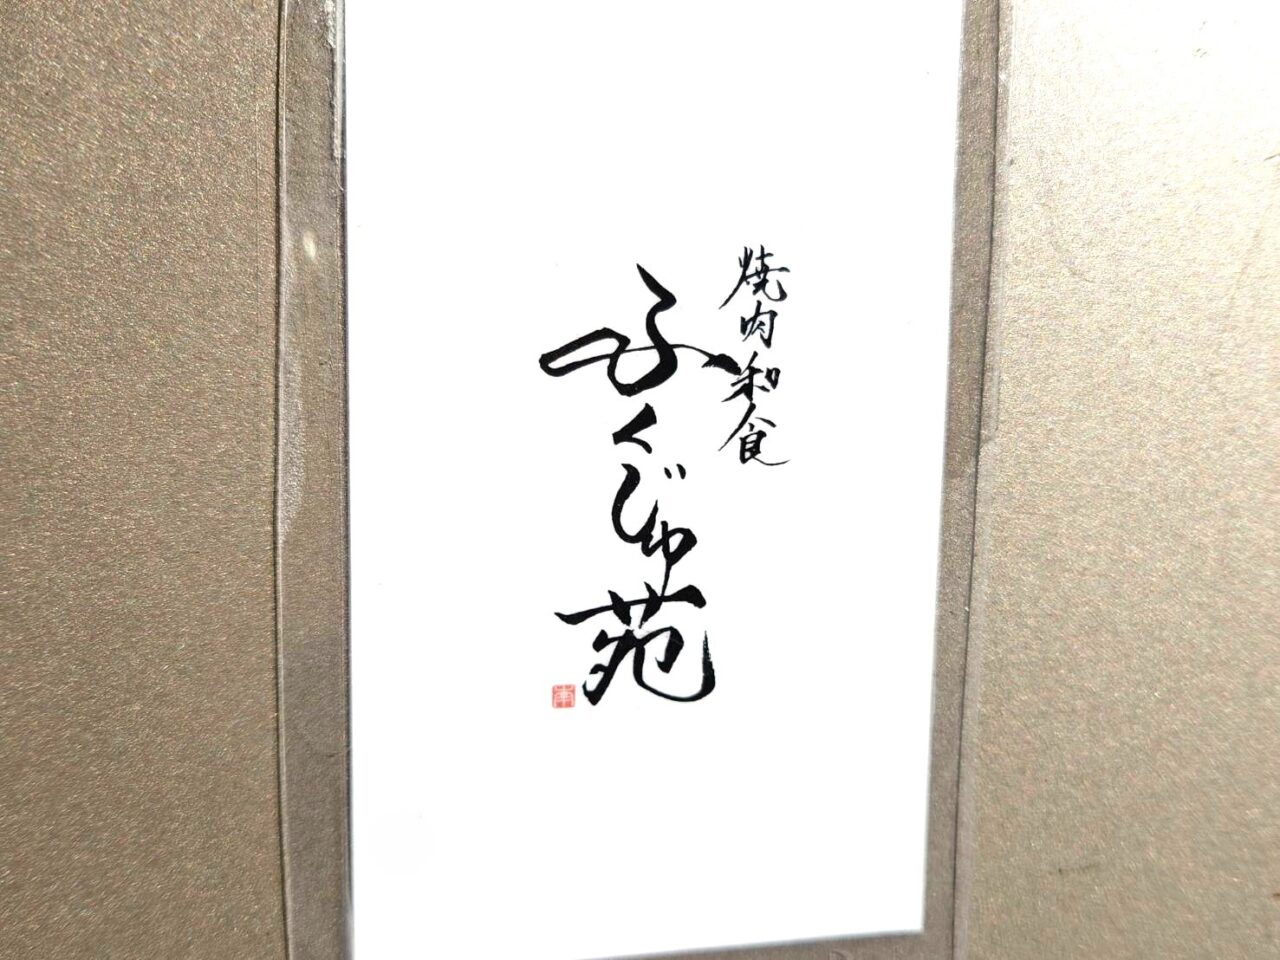 焼肉和食
ふくじゅ苑